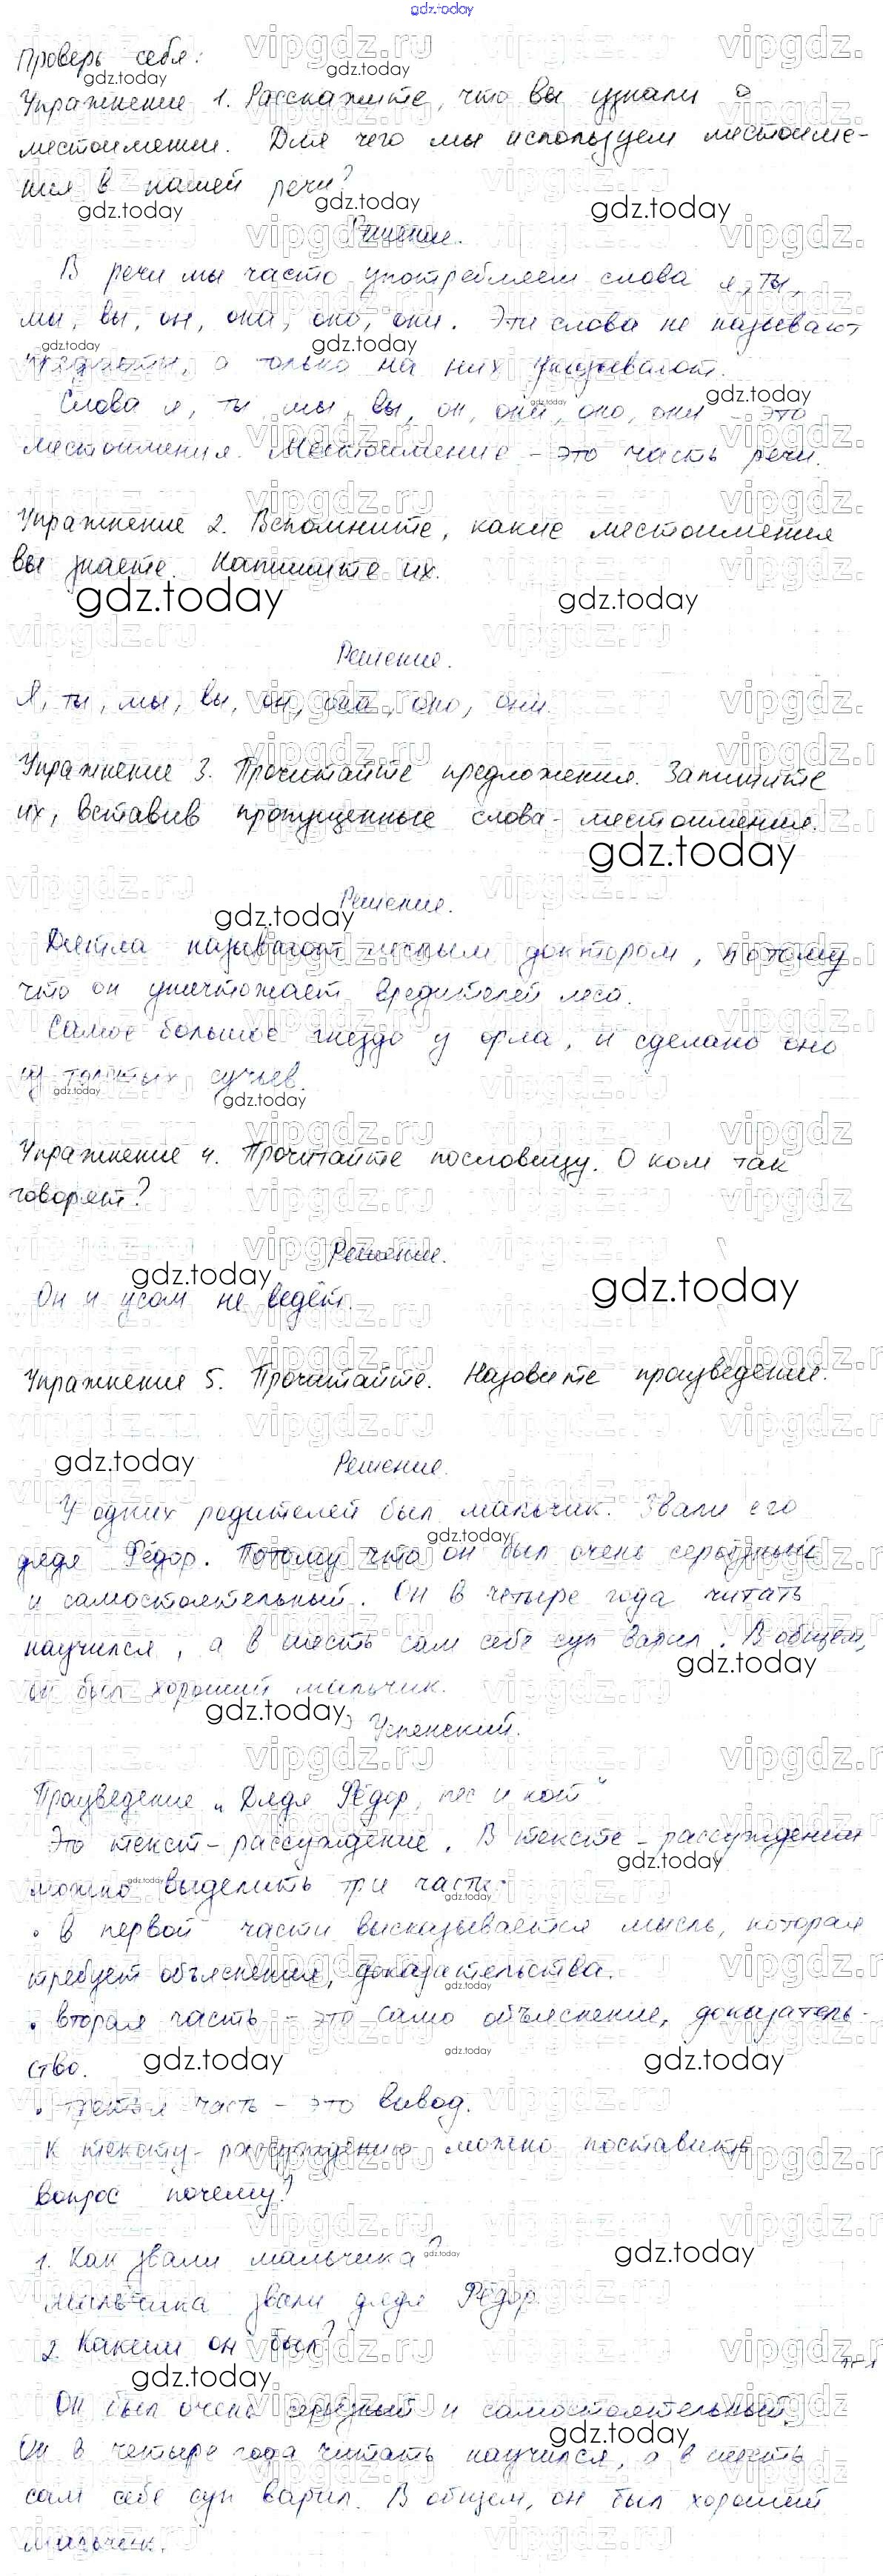 gdz.today
Проверь себя:
Упражнение 1. Расскажите, что вы узнали о
местоимении. Для чего мы используем местоиме-
ния в нашей речи?
Решение.
В речи мы часто употребляем слова я, ты,
мы, вы, он, она, оно, они. Эти слова не называют
предметы, а только на них указывают.
Слова я, ты, мы, вы, он, она, оно, они - это
местоимения. Местоимение - это часть речи.
Упражнение 2. Вспомните, какие местоимения
вы знаете. Напишите их.
gdz.today gdz.today
Решение.
Я, ты, мы, вы, он, она, оно, они.
Упражнение 3. Прочитайте предложения. Запишите
их, вставив пропущенные слова - местоимения.
gdz.today
Решение.
Дятла называют лесным доктором, потому
что он уничтожает вредителей леса.
Самое большое гнездо у орла, и сделано оно
из толстых сучьев.
Упражнение 4. Прочитайте пословицу. О ком так
говорят?
Решение.
Он и усом не ведёт.
Упражнение 5. Прочитайте. Назовите произведение.
Решение.
У одних родителей был мальчик. Звали его
дядя Фёдор. Потому что он был очень серьёзный
и самостоятельный. Он в четыре года читать
научился, а в шесть сам себе суп варил. В общем,
он был хороший мальчик.
Э Успенский.
Произведение "Дядя Фёдор, пёс и кот"
Это текст - рассуждение. В тексте - рассуждении
можно выделить три части:
• в первой части высказывается мысль, которая
требует объяснения, доказательства.
• вторая часть - это само объяснение, доказатель-
ство.
• третья часть - это вывод.
К тексту - рассуждению можно поставить
вопрос почему?
1. Как звали мальчика?
Мальчика звали дядя Фёдор.
2. Каким он был?
Он был очень серьёзный и самостоятельный.
Он в четыре года читать научился, а в шесть
сам себе суп варил. В общем, он был хороший
мальчик.